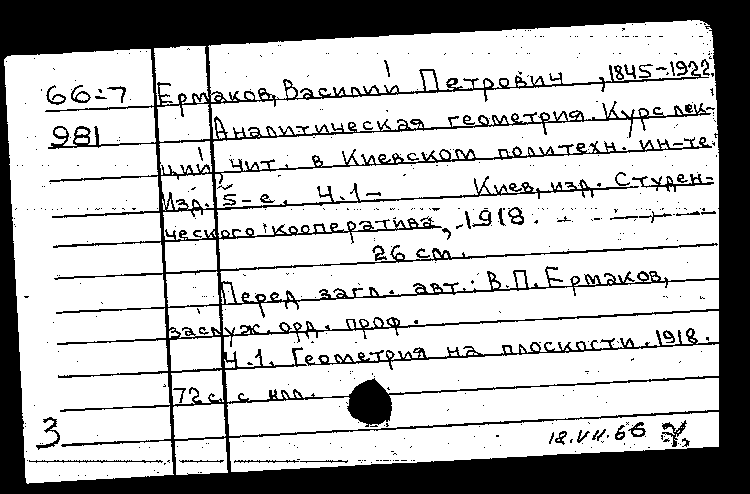 66-7 Ермаков, Василий Петрович, 1845-1922.
981 Аналитическая геометрия. Курс лек-
ций, чит. в Киевском политехн. ин-те.
Изд. 5-е. Ч.1- Киев, изд. Студен-
ческого кооператива, 1918.
26 см.
Перед загл. авт.: В.П. Ермаков,
заслуж. орд. проф.
Ч.1. Геометрия на плоскости. 1918.
72 с. с илл.
3 18.VII.66